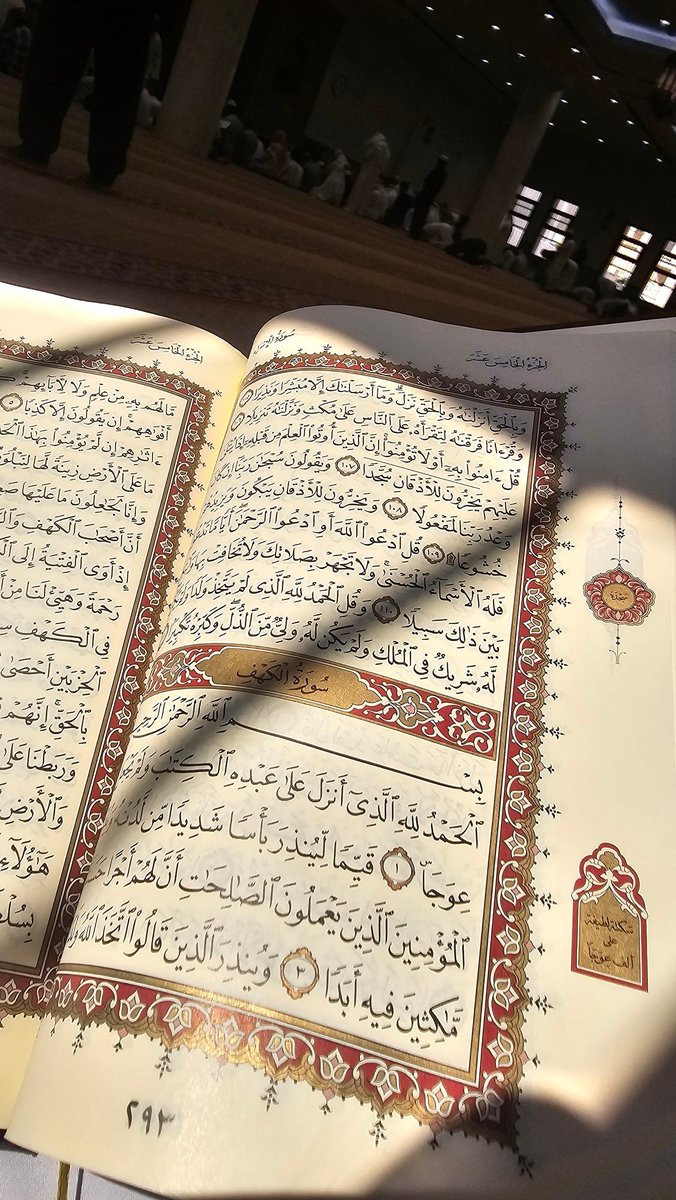 الجُزْءُ الخَامِسَ عَشَرَ
وَبِٱلْحَقِّ أَنزَلْنَٰهُ وَبِٱلْحَقِّ نَزَلَ ۗ وَمَآ أَرْسَلْنَٰكَ إِلَّا مُبَشِّرًا وَنَذِيرًا
وَقُرْءَانًا فَرَقْنَٰهُ لِتَقْرَأَهُۥ عَلَى ٱلنَّاسِ عَلَىٰ مُكْثٍ وَنَزَّلْنَٰهُ تَنزِيلًا
قُلْ ءَامِنُوا۟ بِهِۦٓ أَوْ لَا تُؤْمِنُوٓا۟ ۚ إِنَّ ٱلَّذِينَ أُوتُوا۟ ٱلْعِلْمَ مِن قَبْلِهِۦٓ إِذَا يُتْلَىٰ
عَلَيْهِمْ يَخِرُّونَ لِلْأَذْقَانِ سُجَّدًا ١٠٧ وَيَقُولُونَ سُبْحَٰنَ رَبِّنَآ إِن
وَعْدُ رَبِّنَا لَمَفْعُولًا ١٠٨ وَيَخِرُّونَ لِلْأَذْقَانِ يَبْكُونَ وَيَزِيدُ
خُشُوعًا ۩ ١٠٩ قُلِ ٱدْعُوا۟ ٱللَّهَ أَوِ ٱدْعُوا۟ ٱلرَّحْمَٰنَ ۖ أَيًّا مَّا
فَلَهُ ٱلْأَسْمَآءُ ٱلْحُسْنَىٰ ۚ وَلَا تَجْهَرْ بِصَلَاتِكَ وَلَا تُخَافِتْ بِهَا
بَيْنَ ذَٰلِكَ سَبِيلًا ١١٠ وَقُلِ ٱلْحَمْدُ لِلَّهِ ٱلَّذِى لَمْ يَتَّخِذْ وَلَدًا
لَّهُۥ شَرِيكٌ فِى ٱلْمُلْكِ وَلَمْ يَكُن لَّهُۥ وَلِىٌّ مِّنَ ٱلذُّلِّ ۖ وَكَبِّرْهُ تَكْبِيرًا
سُورَةُ الكَهْفِ
بِسْمِ ٱللَّهِ ٱلرَّحْمَٰنِ ٱلرَّحِ
ٱلْحَمْدُ لِلَّهِ ٱلَّذِىٓ أَنزَلَ عَلَىٰ عَبْدِهِ ٱلْكِتَٰبَ وَلَمْ
عِوَجَاۜ ١ قَيِّمًا لِّيُنذِرَ بَأْسًا شَدِيدًا مِّن لَّدُنْهُ
ٱلْمُؤْمِنِينَ ٱلَّذِينَ يَعْمَلُونَ ٱلصَّٰلِحَٰتِ أَنَّ لَهُمْ أَجْرًا
مَّٰكِثِينَ فِيهِ أَبَدًا ٣ وَيُنذِرَ ٱلَّذِينَ قَالُوا۟ ٱتَّخَذَ ٱللَّهُ
٢٩٣
سَجْدَة
سَكتة لطيفة
على
ألف عِوَجَا
الجُزْءُ الخَامِسَ عَشَرَ
مَّا لَهُم بِهِۦ مِنْ عِلْمٍ وَلَا لِـَٔابَآئِهِمْ ۚ
أَفْوَٰهِهِمْ ۚ إِن يَقُولُونَ إِلَّا كَذِبًا ٥
ءَاثَٰرِهِمْ إِن لَّمْ يُؤْمِنُوا۟ بِهَٰذَا ٱلْحَ
مَا عَلَى ٱلْأَرْضِ زِينَةً لَّهَا لِنَبْلُوَ
وَإِنَّا لَجَٰعِلُونَ مَا عَلَيْهَا صَ
أَنَّ أَصْحَٰبَ ٱلْكَهْفِ وَٱل
إِذْ أَوَى ٱلْفِتْيَةُ إِلَى ٱلْ
رَحْمَةً وَهَيِّئْ لَنَا مِنْ أَ
فِى ٱلْكَهْفِ سِ
ٱلْحِزْبَيْنِ أَحْصَىٰ
بِٱلْحَقِّ ۚ إِنَّهُمْ
وَرَبَطْنَا عَلَىٰ
وَٱلْأَرْضِ
هَٰٓؤُلَآءِ
بِسُلْطَ